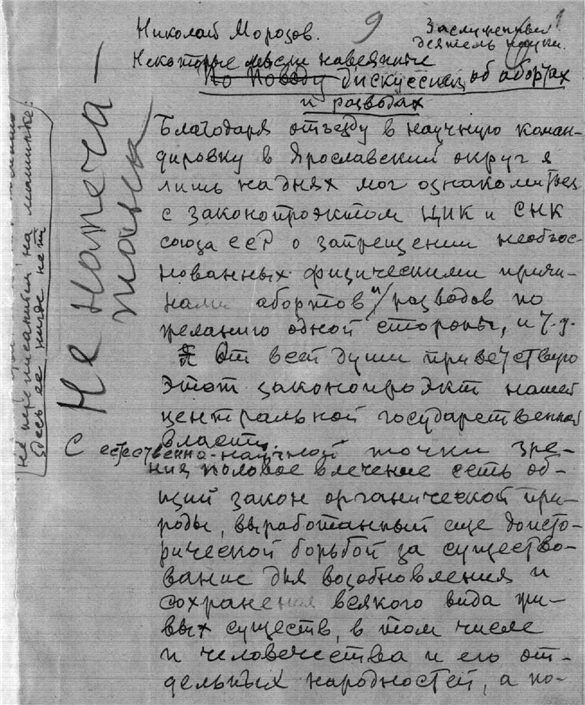 Николай Морозов.
9
Заслуженный
деятель науки.
Некоторые мысли навеянные
по поводу дискуссией об абортах
и разводах
Не напеча-
таны
не переписанной на машинке:
здесь ее нигде нет
Благодаря отъезду в научную коман-
дировку в Ярославский округ я
лишь на днях мог ознакомиться
с законопроэктом ЦИК и СНК
союза ССР о запрещении необос-
нованных физическими причи-
нами абортов и разводов по
желанию одной стороны, и т.д.
От всей души приветствую
этот законопроэкт нашей
центральной государственной
власти.
С естественно-научной точки зре-
ния половое влечение есть об-
щий закон органической при-
роды, выработанный еще доисто-
рической борьбой за существо-
вание для возобновления и
сохранения всякого вида жи-
вых существ, в том числе
и человечества и его от-
дельных народностей, а по-